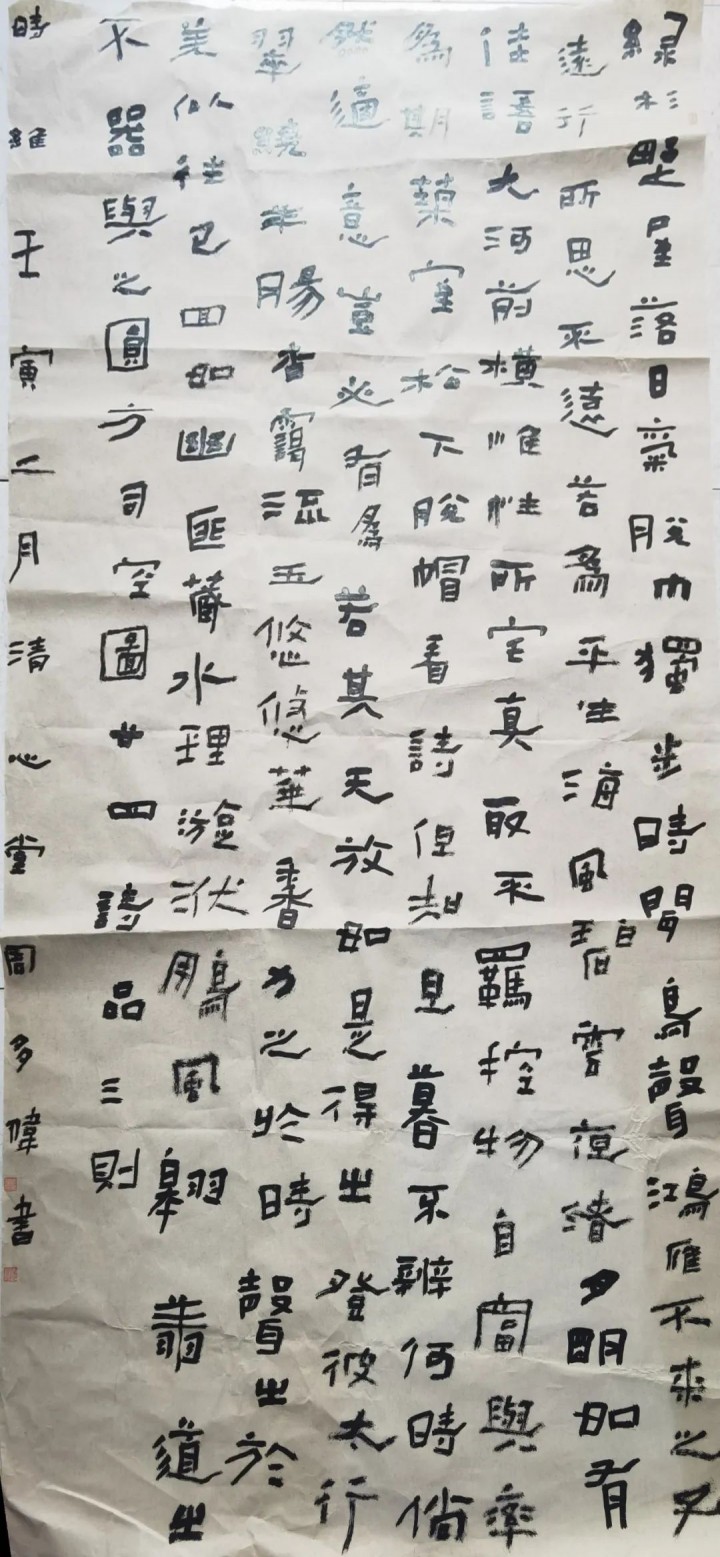 綠杉野屋落日氣脫巾獨步時聞鳥聲鴻雁不來之子
遠行所思不遠若為平生海風碧雲夜渚夕明如有
佳語大河前橫惟性所宅真取不羈控物自富與率
為期築室松下脫帽看詩但知旦暮不辨何時倘
然適意豈必有為若其天放如是得之登彼太行
翠繞羊腸杳靄流玉悠悠華香力之於時聲之於
羌似往已回如幽匪藏水理漩洑鵬風翱翔道之
不器與之圓方司空圖廿四詩品三則
時維壬寅二月清心堂周多偉書